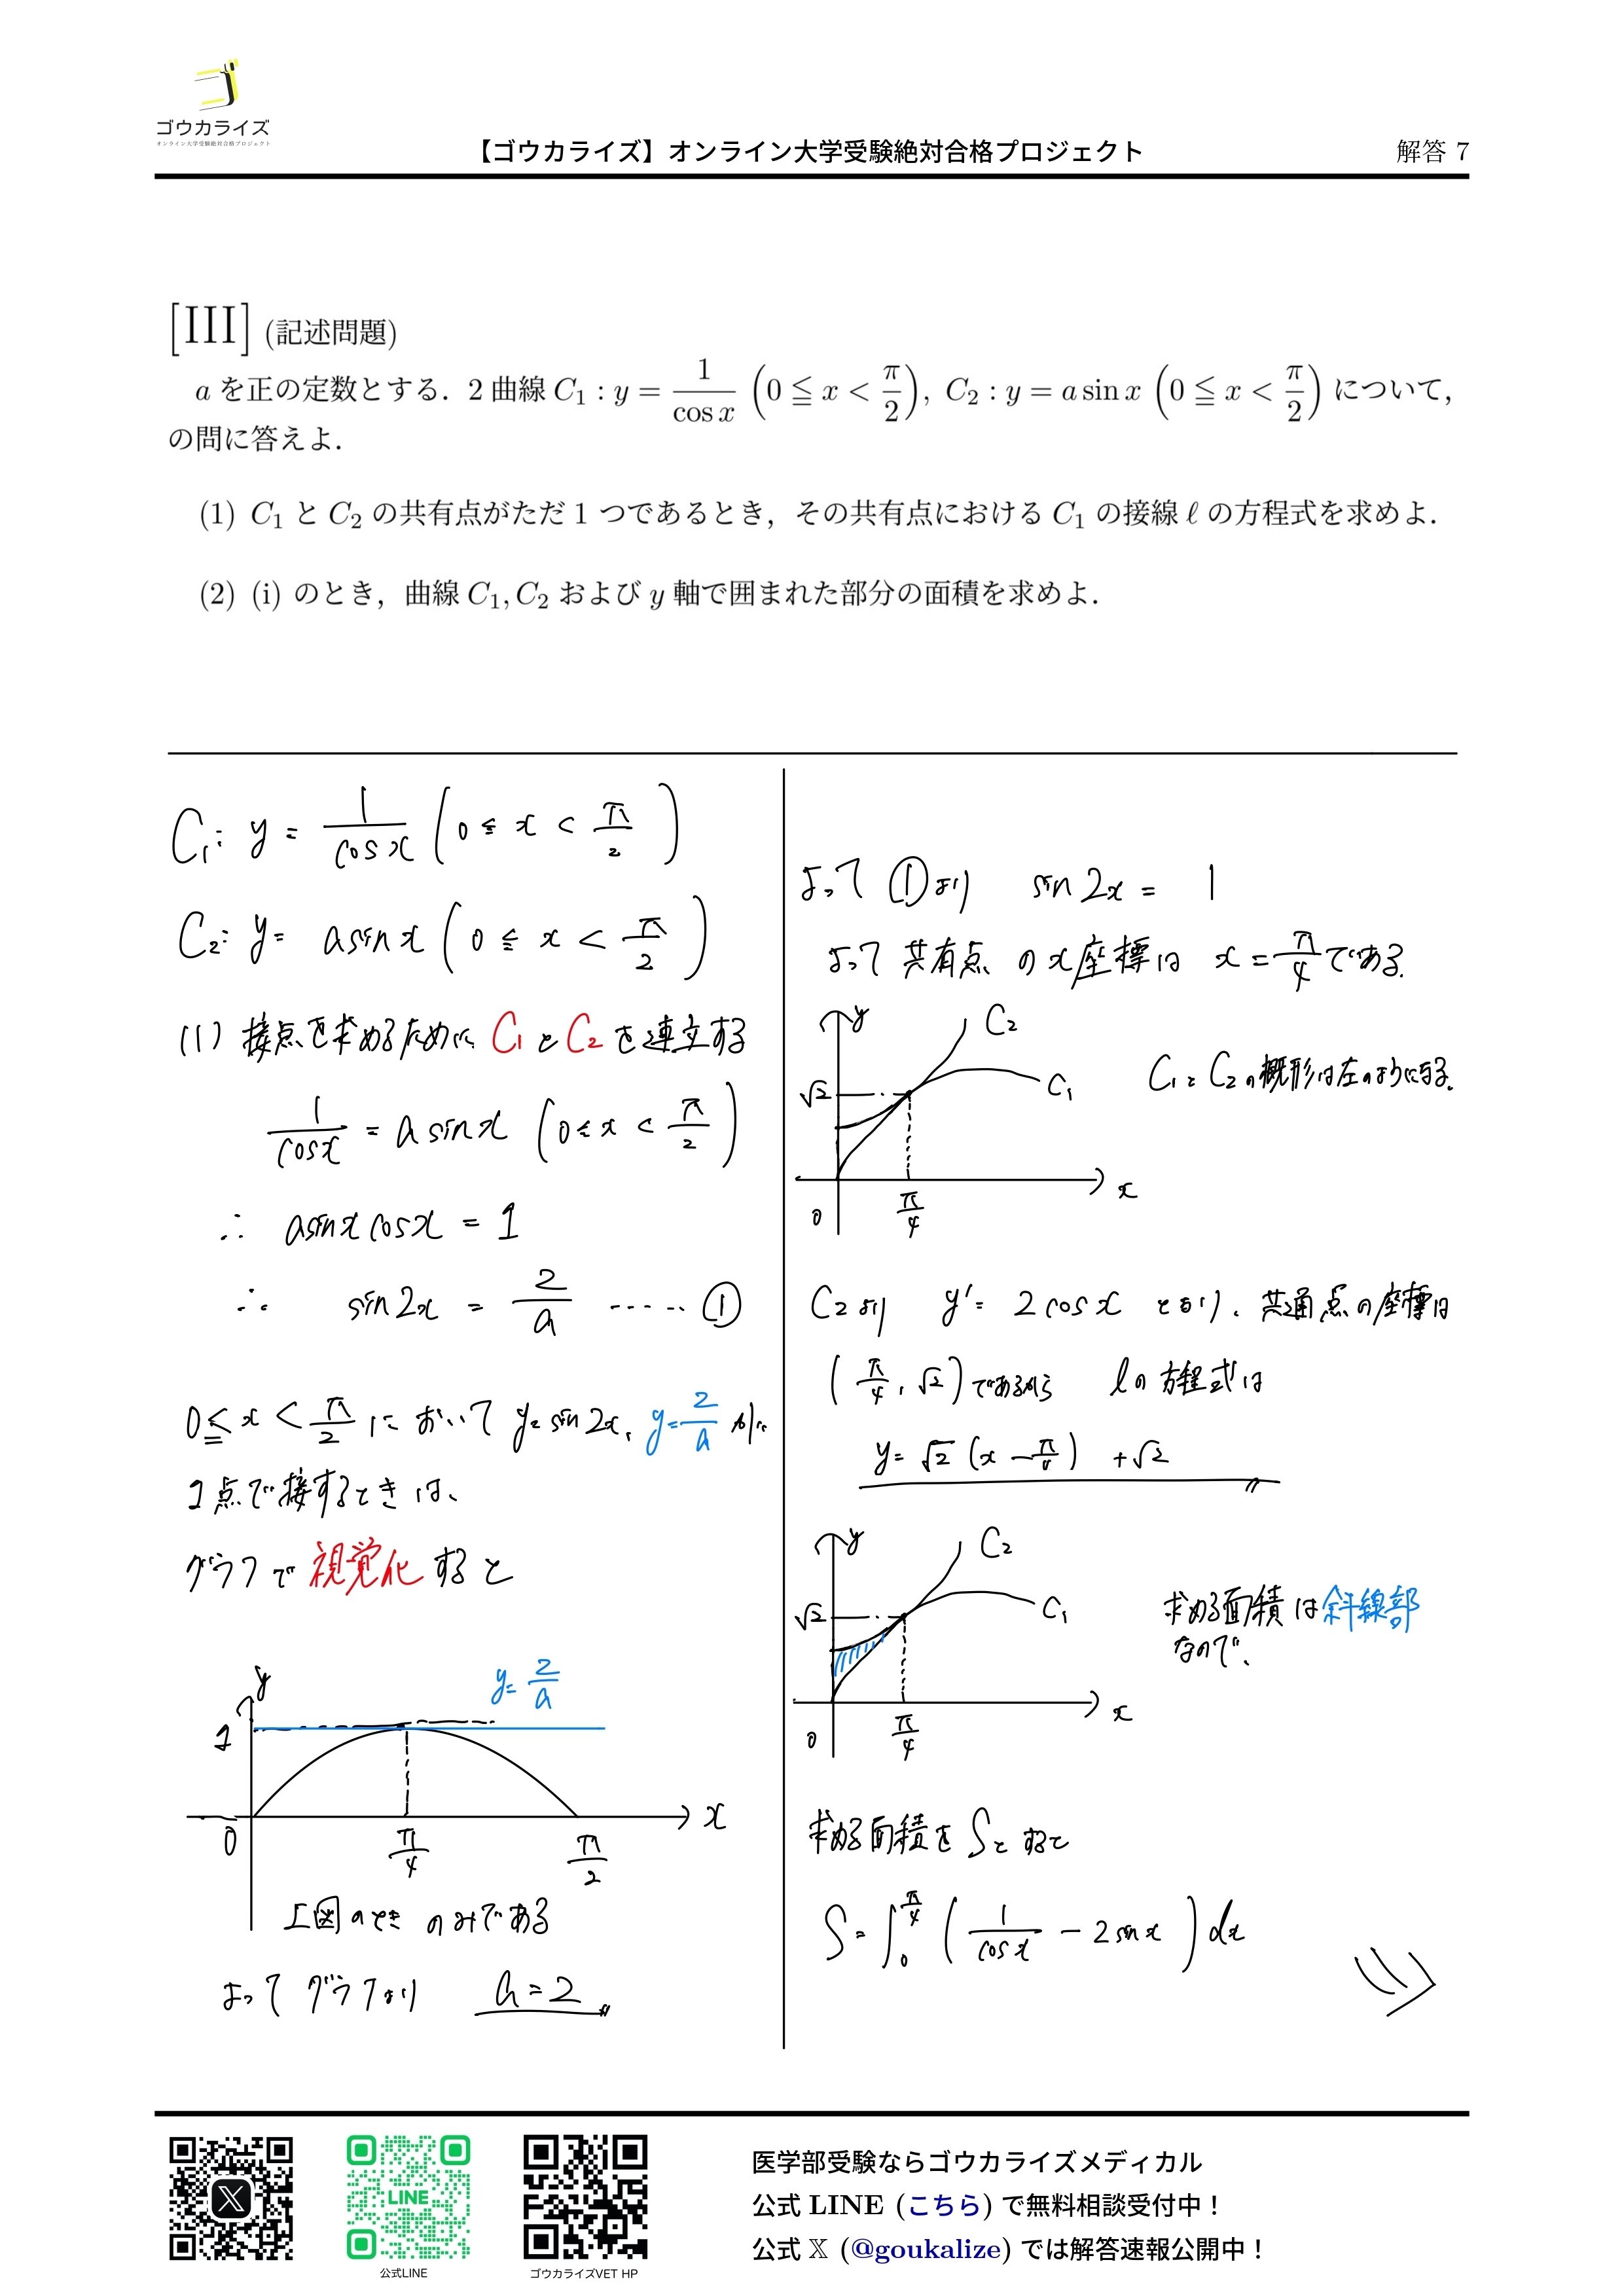 ゴウカライズ
オンライン大学受験絶対合格プロジェクト
【ゴウカライズ】オンライン大学受験絶対合格プロジェクト
解答 7
[III] (記述問題)
a を正の定数とする. 2 曲線 C₁ : y = 1/cos x (0 ≦ x < π/2), C₂ : y = a sin x (0 ≦ x < π/2) について,
の問に答えよ.
(1) C₁ と C₂ の共有点がただ 1 つであるとき, その共有点における C₁ の接線 ℓ の方程式を求めよ.
(2) (i) のとき, 曲線 C₁, C₂ および y 軸で囲まれた部分の面積を求めよ.
C₁: y = 1/cos x (0 ≦ x < π/2)
C₂: y = a sin x (0 ≦ x < π/2)
(1) 接点を求めるために、C₁とC₂を連立する
1/cos x = a sin x (0 ≦ x < π/2)
∴ a sin x cos x = 1
∴ sin 2x = 2/a ······ ①
0 ≦ x < π/2 において y = sin 2x、y = 2/a が
1点で接するときは、
グラフで視覚化すると
y
y = 2/a
1
0
π/4
π/2
x
上図のときのみである
よってグラフより a = 2
よって ①より sin 2x = 1
よって共有点のx座標は x = π/4 である.
y
C₂
√2
C₁
0
π/4
x
C₁とC₂の概形は左のようになる.
C₂より y' = 2 cos x となり、共通点の座標は
(π/4, √2) であるから ℓの方程式は
y = √2 (x − π/4) + √2
y
C₂
√2
C₁
0
π/4
x
求める面積は斜線部
なので、
求める面積を S とすると
S = ∫₀^{π/4} (1/cos x − 2 sin x) dx
LINE
公式LINE
ゴウカライズVET HP
医学部受験ならゴウカライズメディカル
公式 LINE (こちら) で無料相談受付中！
公式 𝕏 (@goukalize) では解答速報公開中！